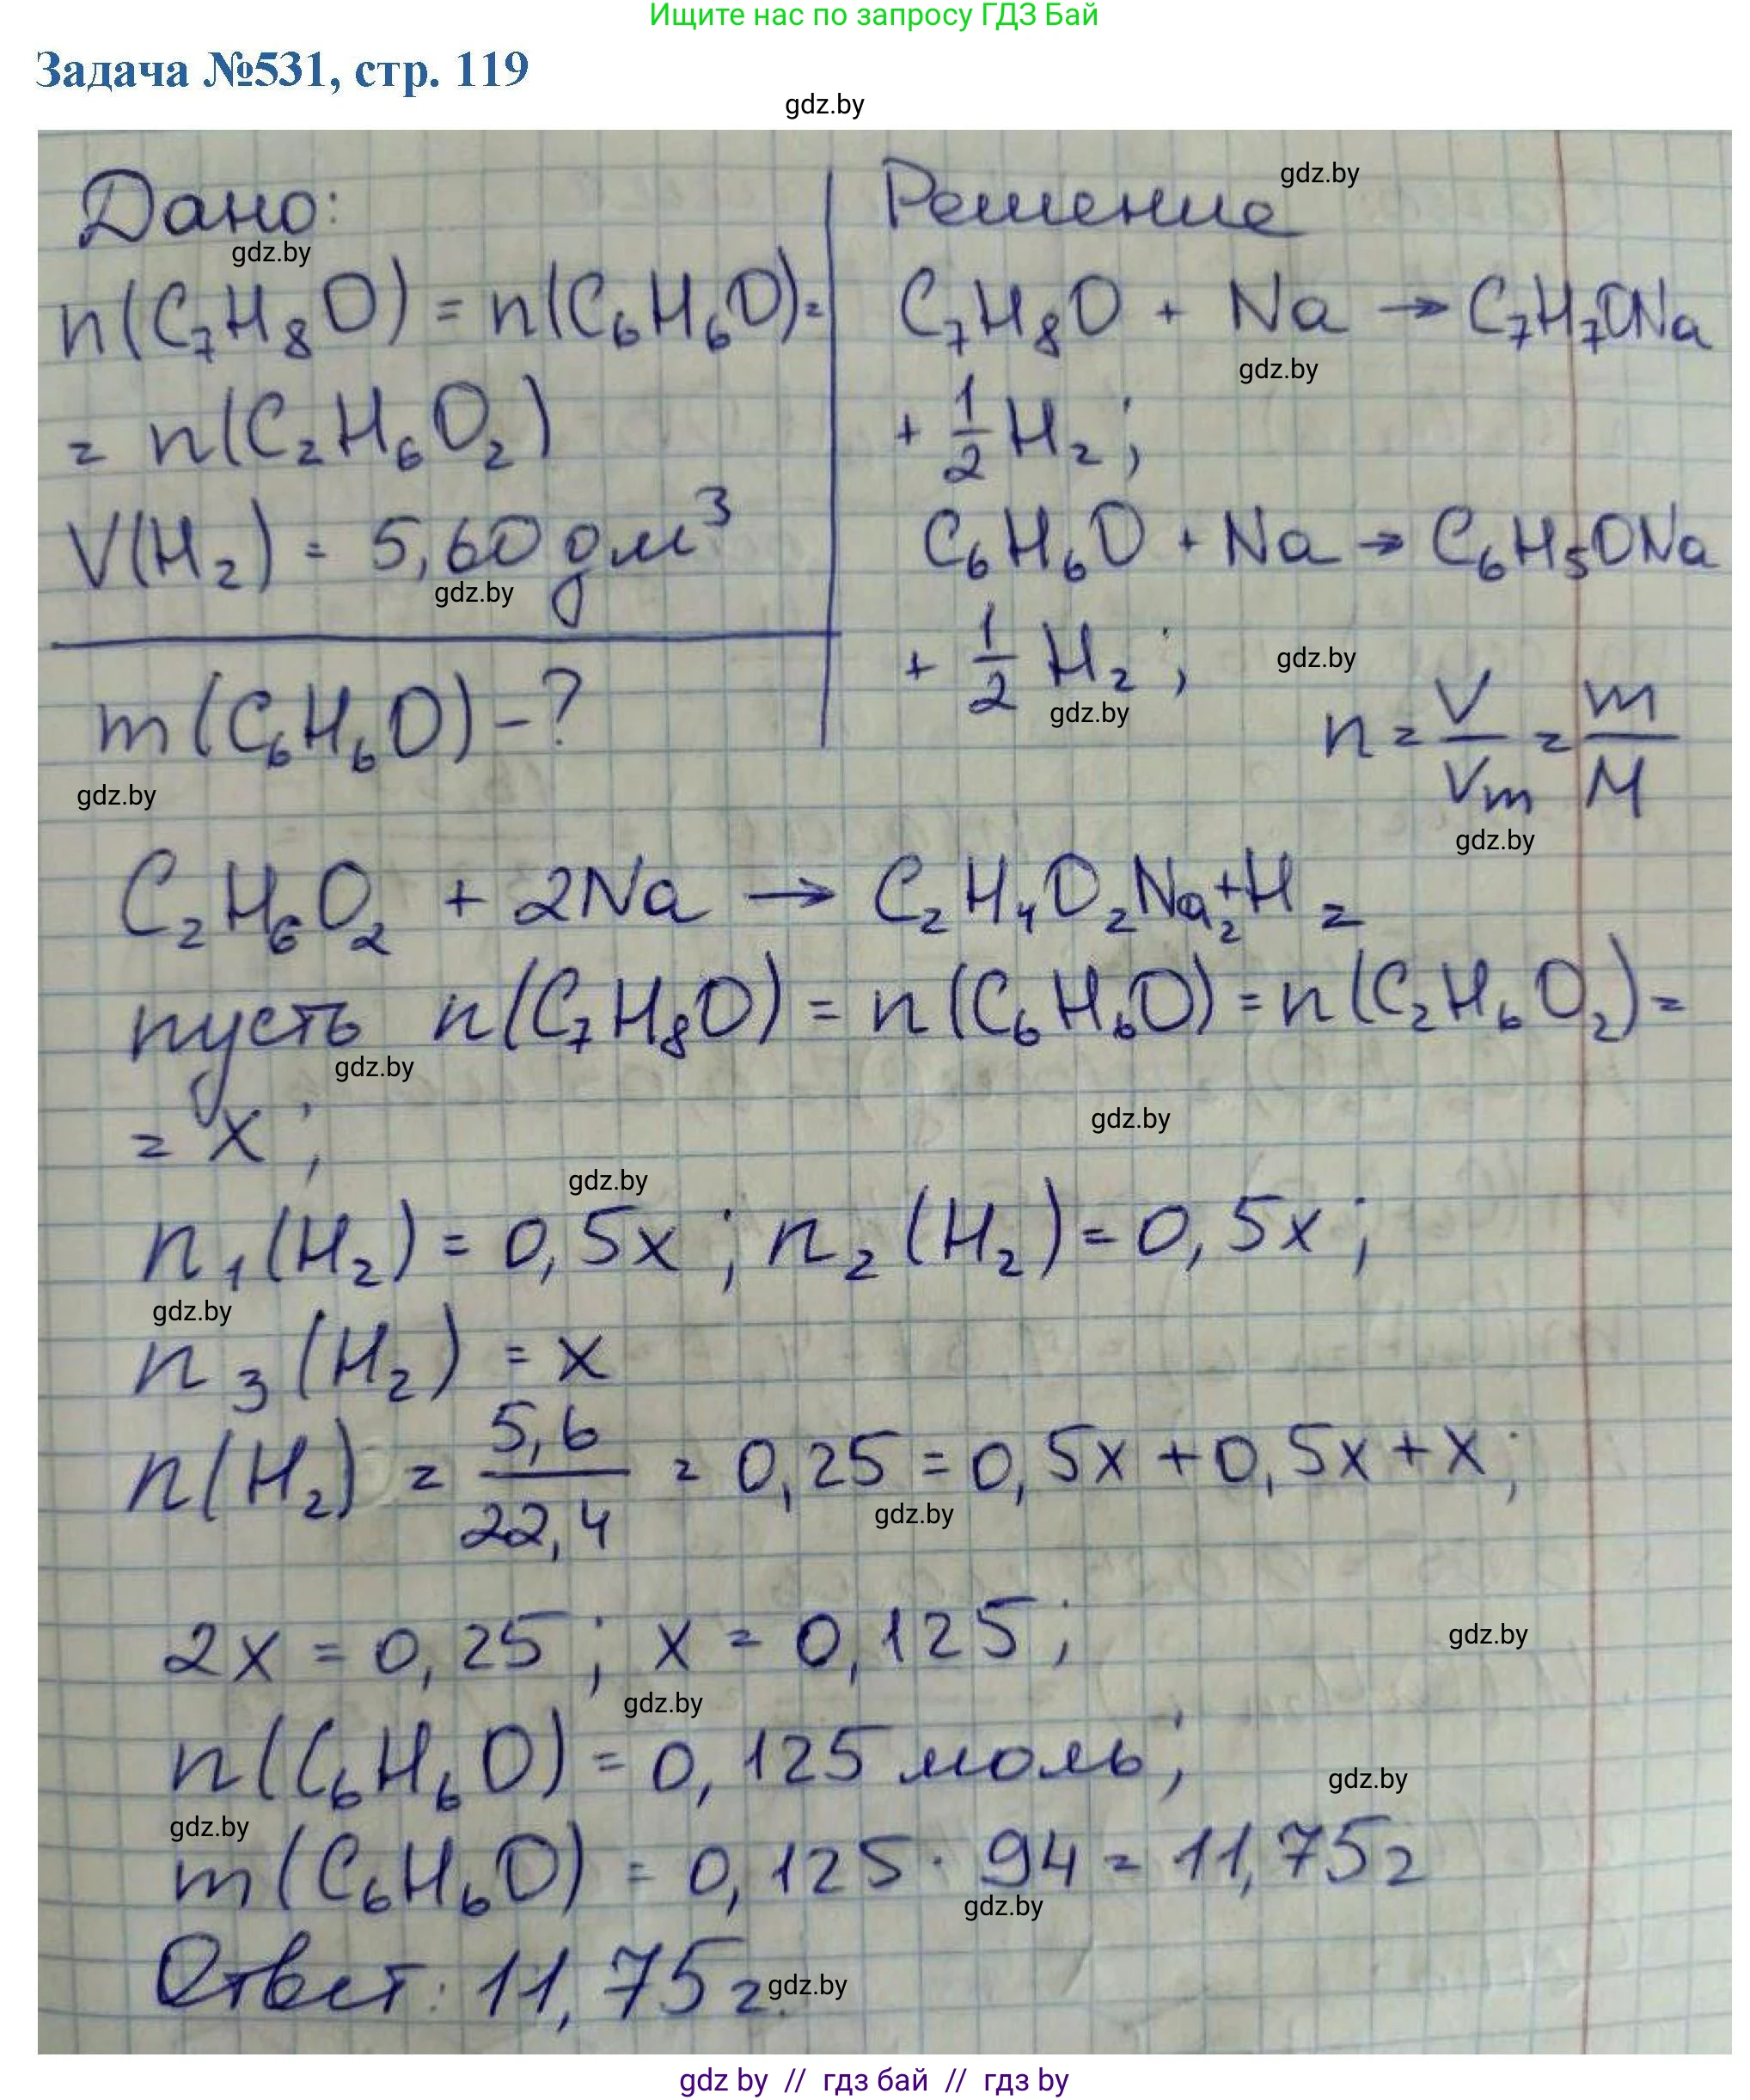 Ищите нас по запросу ГДЗ Бай
Задача №531, стр. 119
gdz.by
Дано:
gdz.by
n(C₇H₈O) = n(C₆H₆O) =
= n(C₂H₆O₂)
V(H₂) = 5,60 дм³
gdz.by
m(C₆H₆O) - ?
gdz.by
Решение
gdz.by
C₇H₈O + Na → C₇H₇ONa
gdz.by
+ 1/2 H₂;
C₆H₆O + Na → C₆H₅ONa
+ 1/2 H₂;
gdz.by
gdz.by
n = V/Vm = m/M
gdz.by
C₂H₆O₂ + 2Na → C₂H₄O₂Na₂ + H₂
пусть n(C₇H₈O) = n(C₆H₆O) = n(C₂H₆O₂) =
gdz.by
= x;
gdz.by
gdz.by
n₁(H₂) = 0,5x; n₂(H₂) = 0,5x;
gdz.by
n₃(H₂) = x
n(H₂) = 5,6/22,4 = 0,25 = 0,5x + 0,5x + x;
gdz.by
2x = 0,25; x = 0,125;
gdz.by
gdz.by
n(C₆H₆O) = 0,125 моль;
gdz.by
gdz.by
m(C₆H₆O) = 0,125 · 94 = 11,75 г
gdz.by
Ответ: 11,75 г.
gdz.by
gdz by // гдз бай // gdz by